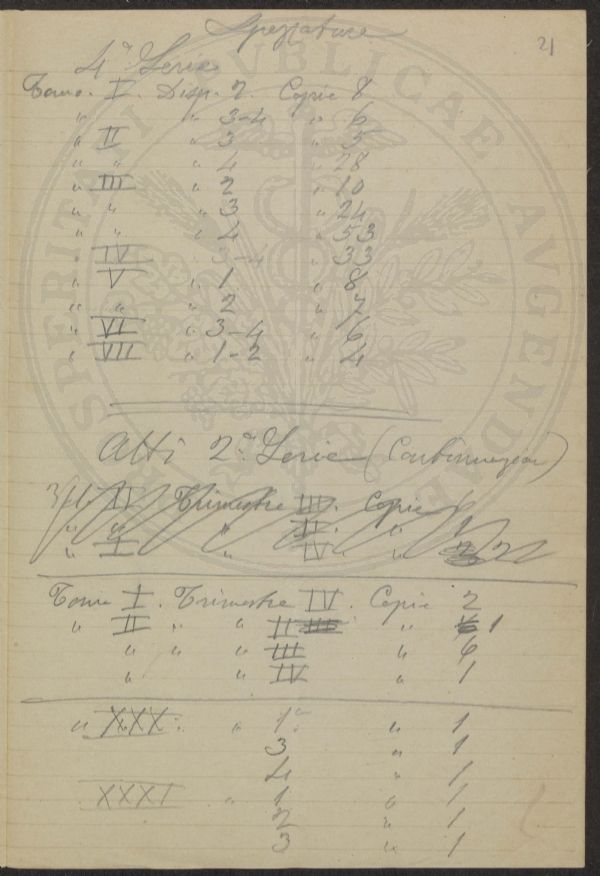 Spezzature
21
4ª Serie
Tomo. I. Disp. 2. Copie 8
" " 3-4 " 6
" II " 3 " 5
" " " 4 " 28
" III " 2 " 10
" " " 3 " 24
" " " 4 " 53
" IV " 3-4 " 33
" V " 1 " 8
" " " 2 " 7
" VI " 3-4 " 6
" VII " 1-2 " 4
Atti 2ª Serie (Continuazione)
IV Trimestre III. Copie 1
" " " II. " 1
" I " IV " 2
Tomo I. Trimestre IV. Copie 2
" II " " II III " 6 1
" " " III " 6
" " IV " 1
" XXX: " 1º: " 1
3 " 1
4 " 1
XXXI " 1 " 1
2 " 1
3 " 1
PROSPERITATI PUBLICAE AUGENDAE